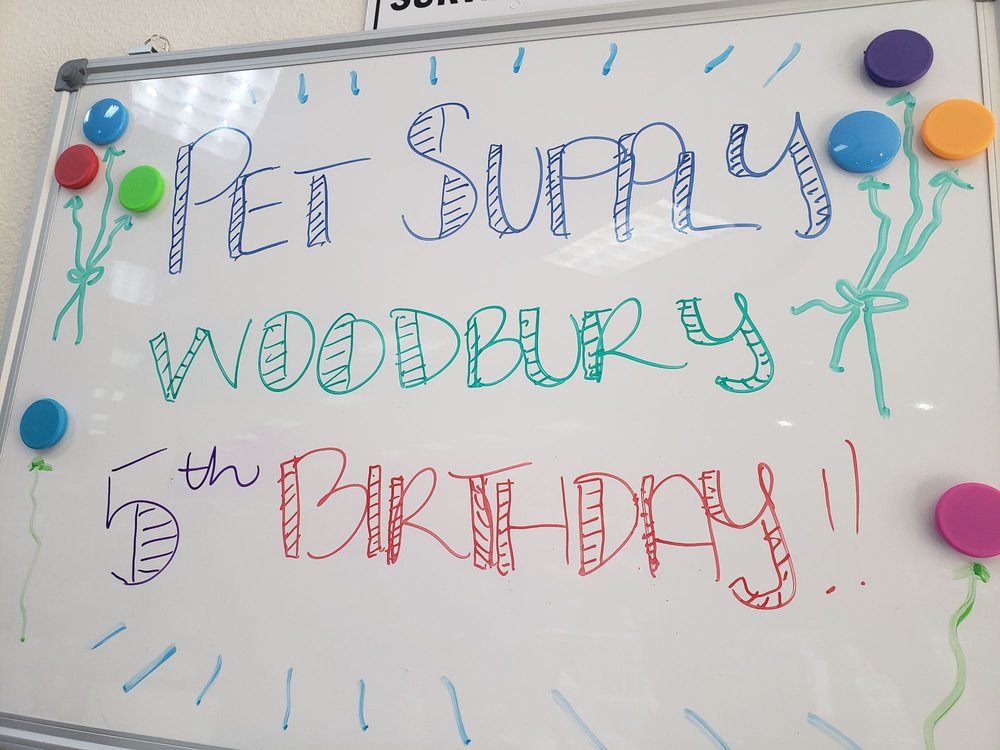 PET SUPPLY
WOODBURY
5th BIRTHDAY!!